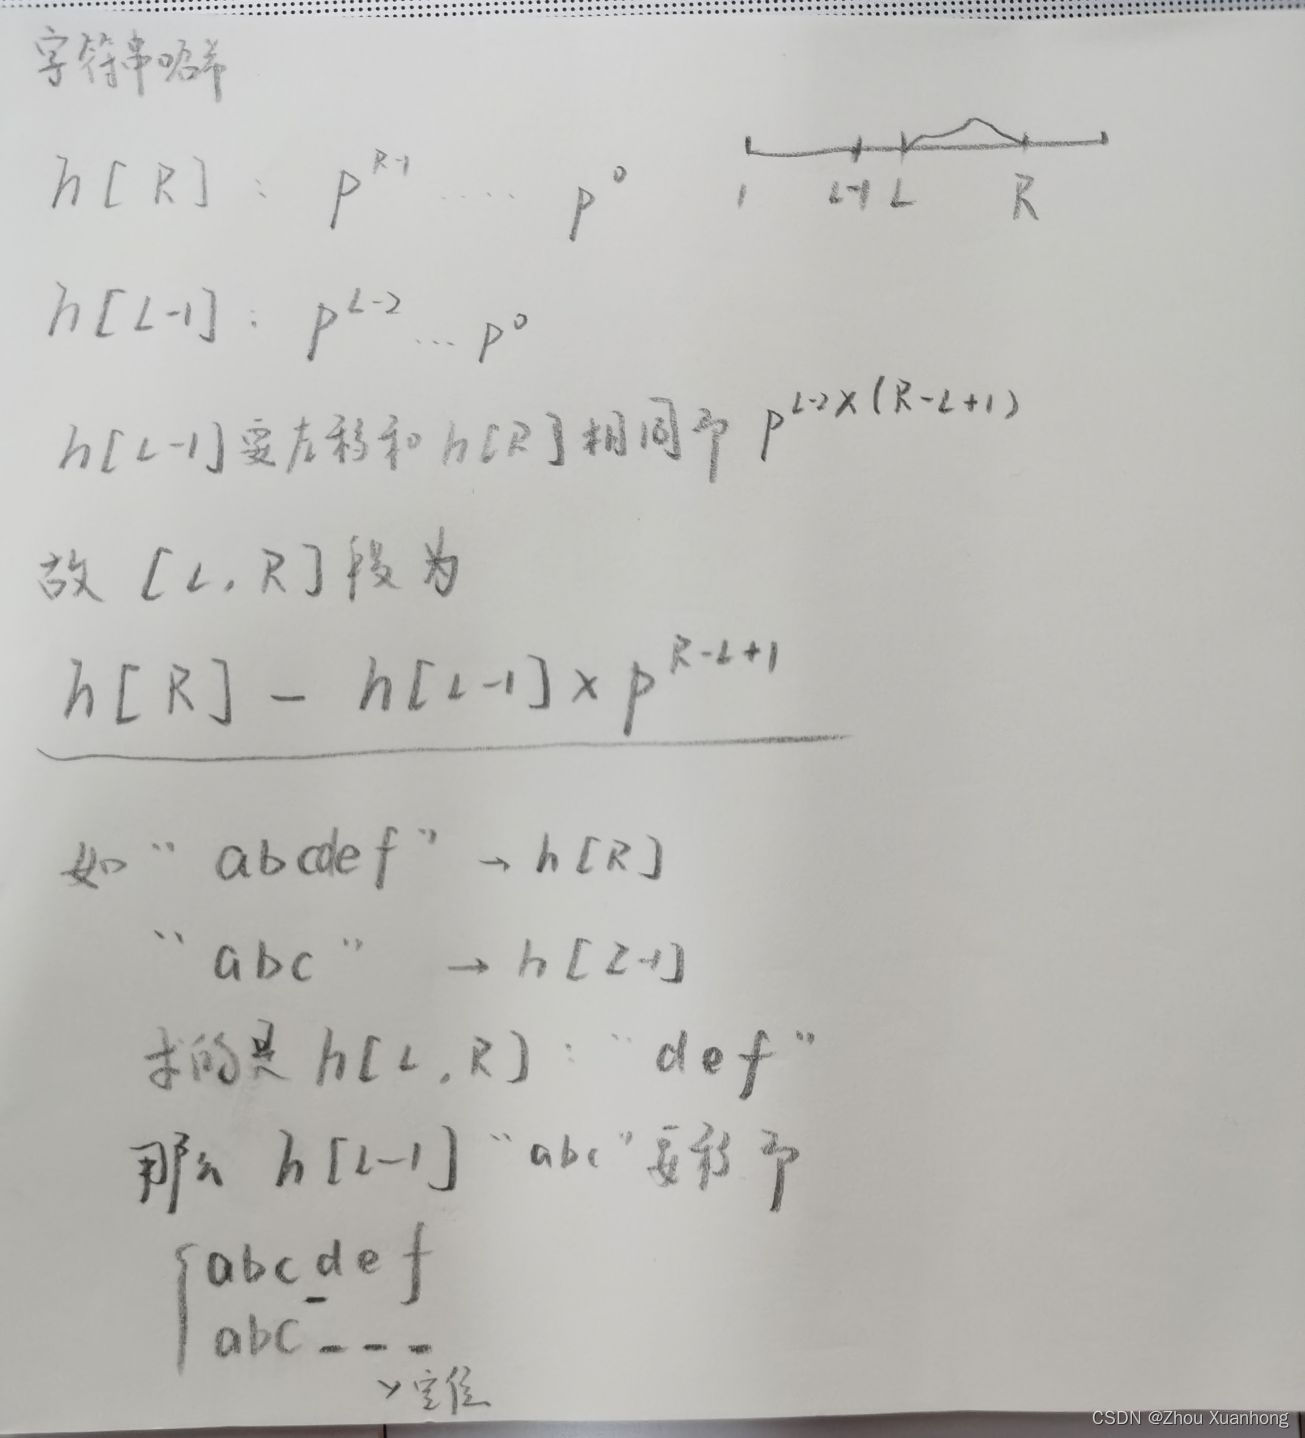 字符串哈希
h[R]: p^{R-1} ····· p^0
1 L-1 L R
h[L-1]: p^{L-2} ... p^0
h[L-1]要左移和h[R]相同即 p^{L-2×(R-L+1)}
故 [L,R]段为
h[R] - h[L-1] × p^{R-L+1}
如 “abcdef” → h[R]
“abc” → h[L-1]
求的是 h[L,R]: “def”
那么 h[L-1] “abc”要移即
abcdef
abc---
>空位
CSDN @Zhou Xuanhong